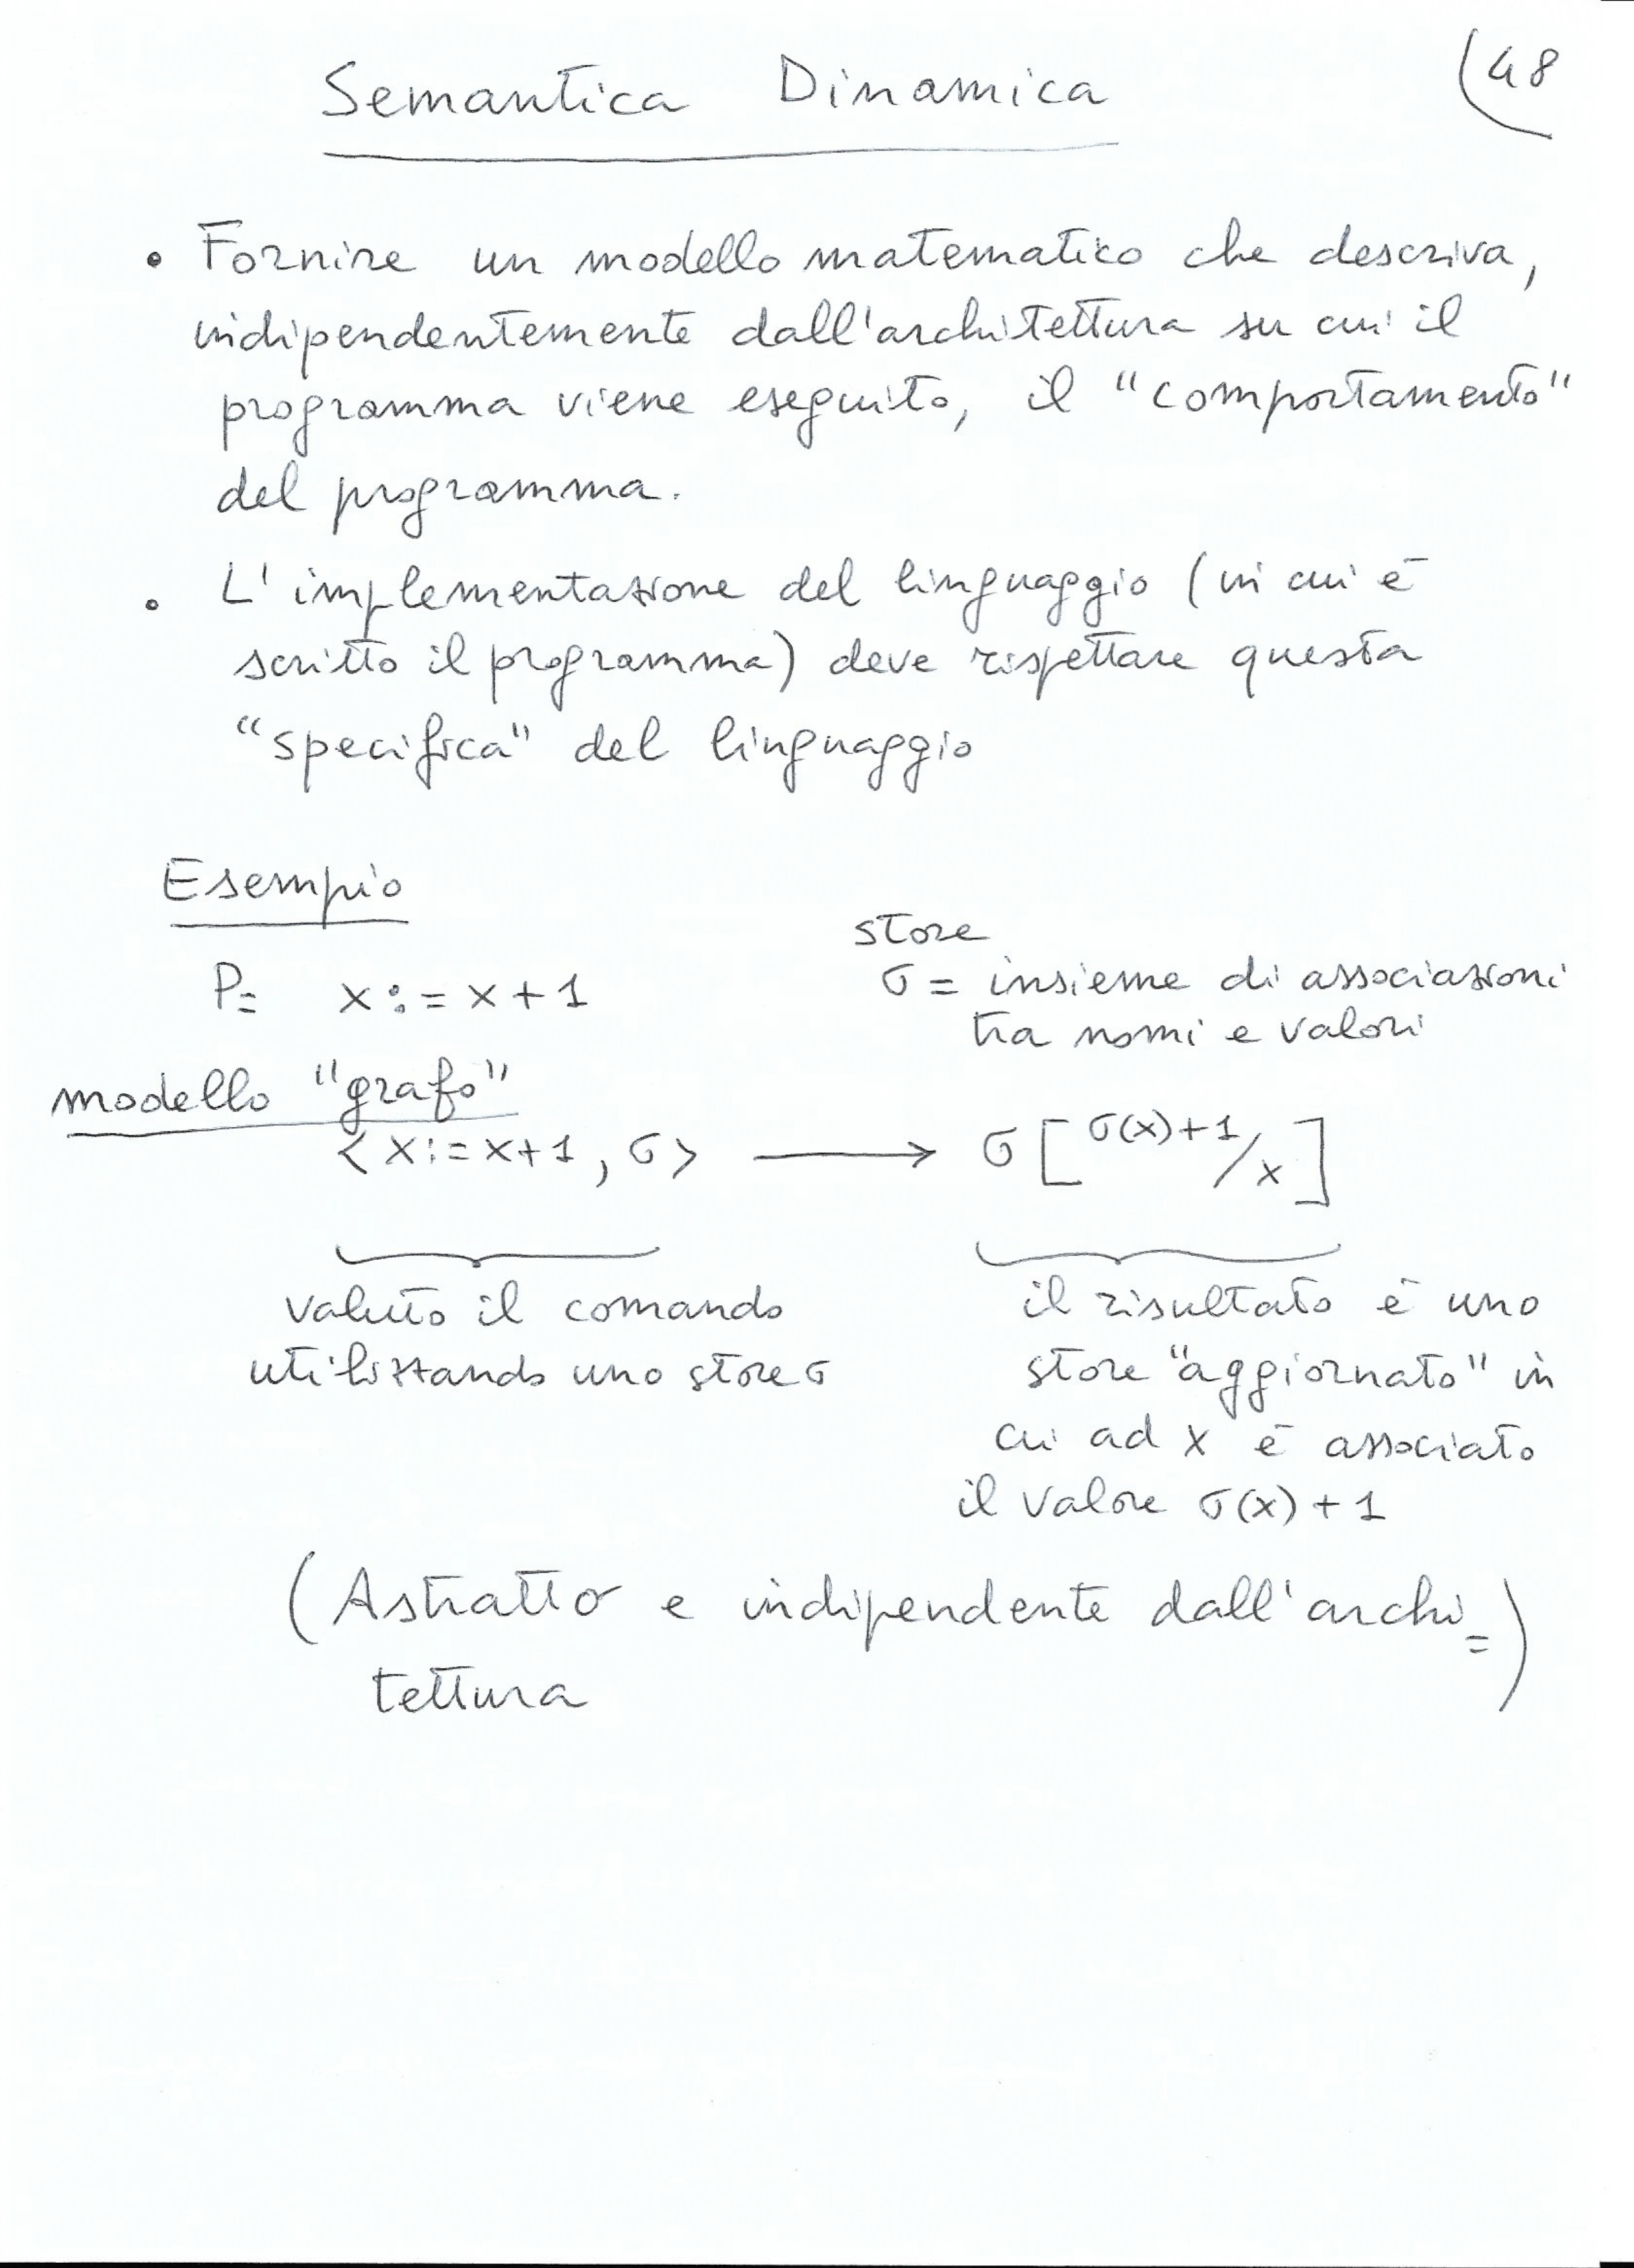 Semantica Dinamica
(48
• Fornire un modello matematico che descriva,
indipendentemente dall'architettura su cui il
programma viene eseguito, il "comportamento"
del programma.
• L'implementazione del linguaggio (in cui è
scritto il programma) deve rispettare questa
"specifica" del linguaggio
Esempio
store
P= x:=x+1
σ = insieme di associazioni
tra nomi e valori
modello "grafo"
<x:=x+1, σ> ⟶ σ[σ(x)+1/x]
valuto il comando
utilizzando uno store σ
il risultato è uno
store "aggiornato" in
cui ad x è associato
il valore σ(x)+1
(Astratto e indipendente dall'archi=)
tettura